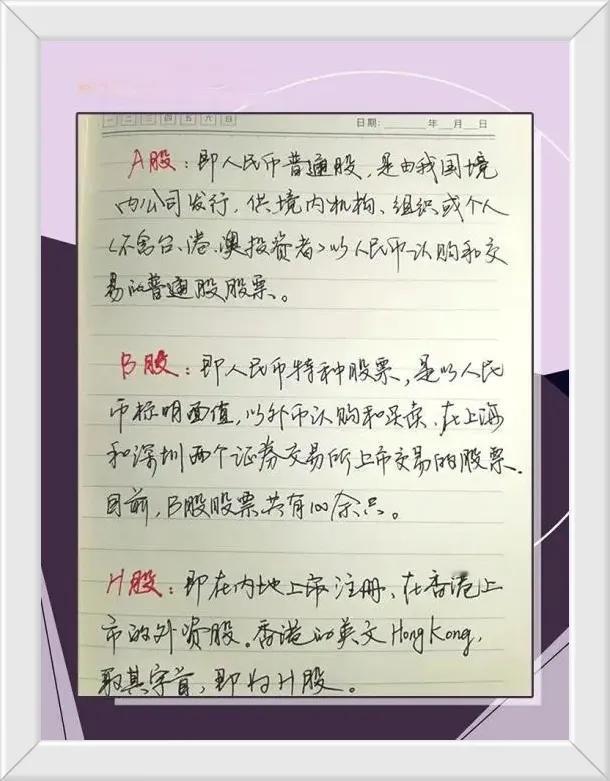 一 二 三 四 五 六 日
日期: 年 月 日
A股：即人民币普通股，是由我国境
内公司发行，供境内机构、组织或个人
(不含台、港、澳投资者)以人民币认购和交
易的普通股股票。
B股：即人民币特种股票，是以人民
币标明面值，以外币认购和买卖、在上海
和深圳两个证券交易所上市交易的股票.
目前，B股股票共有100余只。
H股：即在内地上市注册、在香港上
市的外资股。香港的英文HongKong,
取其字首，即为H股。